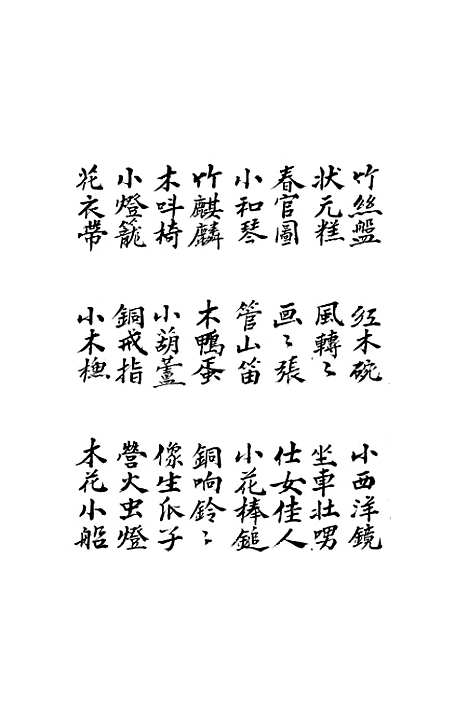 竹絲盤　红木碗　小西洋鏡
状元糕　風轉〻　坐車壯
春官圖　画〻張　仕女佳人
小和琴　管山笛　小花棒鎚
竹麒麟　木鴨蛋　銅响鈴〻
木呌椅　小葫蘆　像生瓜子
小燈籠　銅戒指　營火虫燈
花衣帶　小木　木花小船